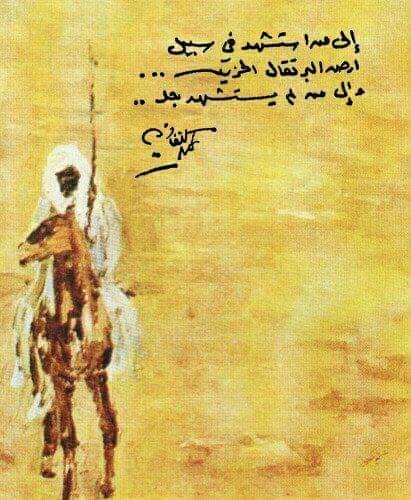 إلى من استشهد في سبيل
ارض البرتقال الحزين ...
وإلى من لم يستشهد بعد ..
غسان كنفاني